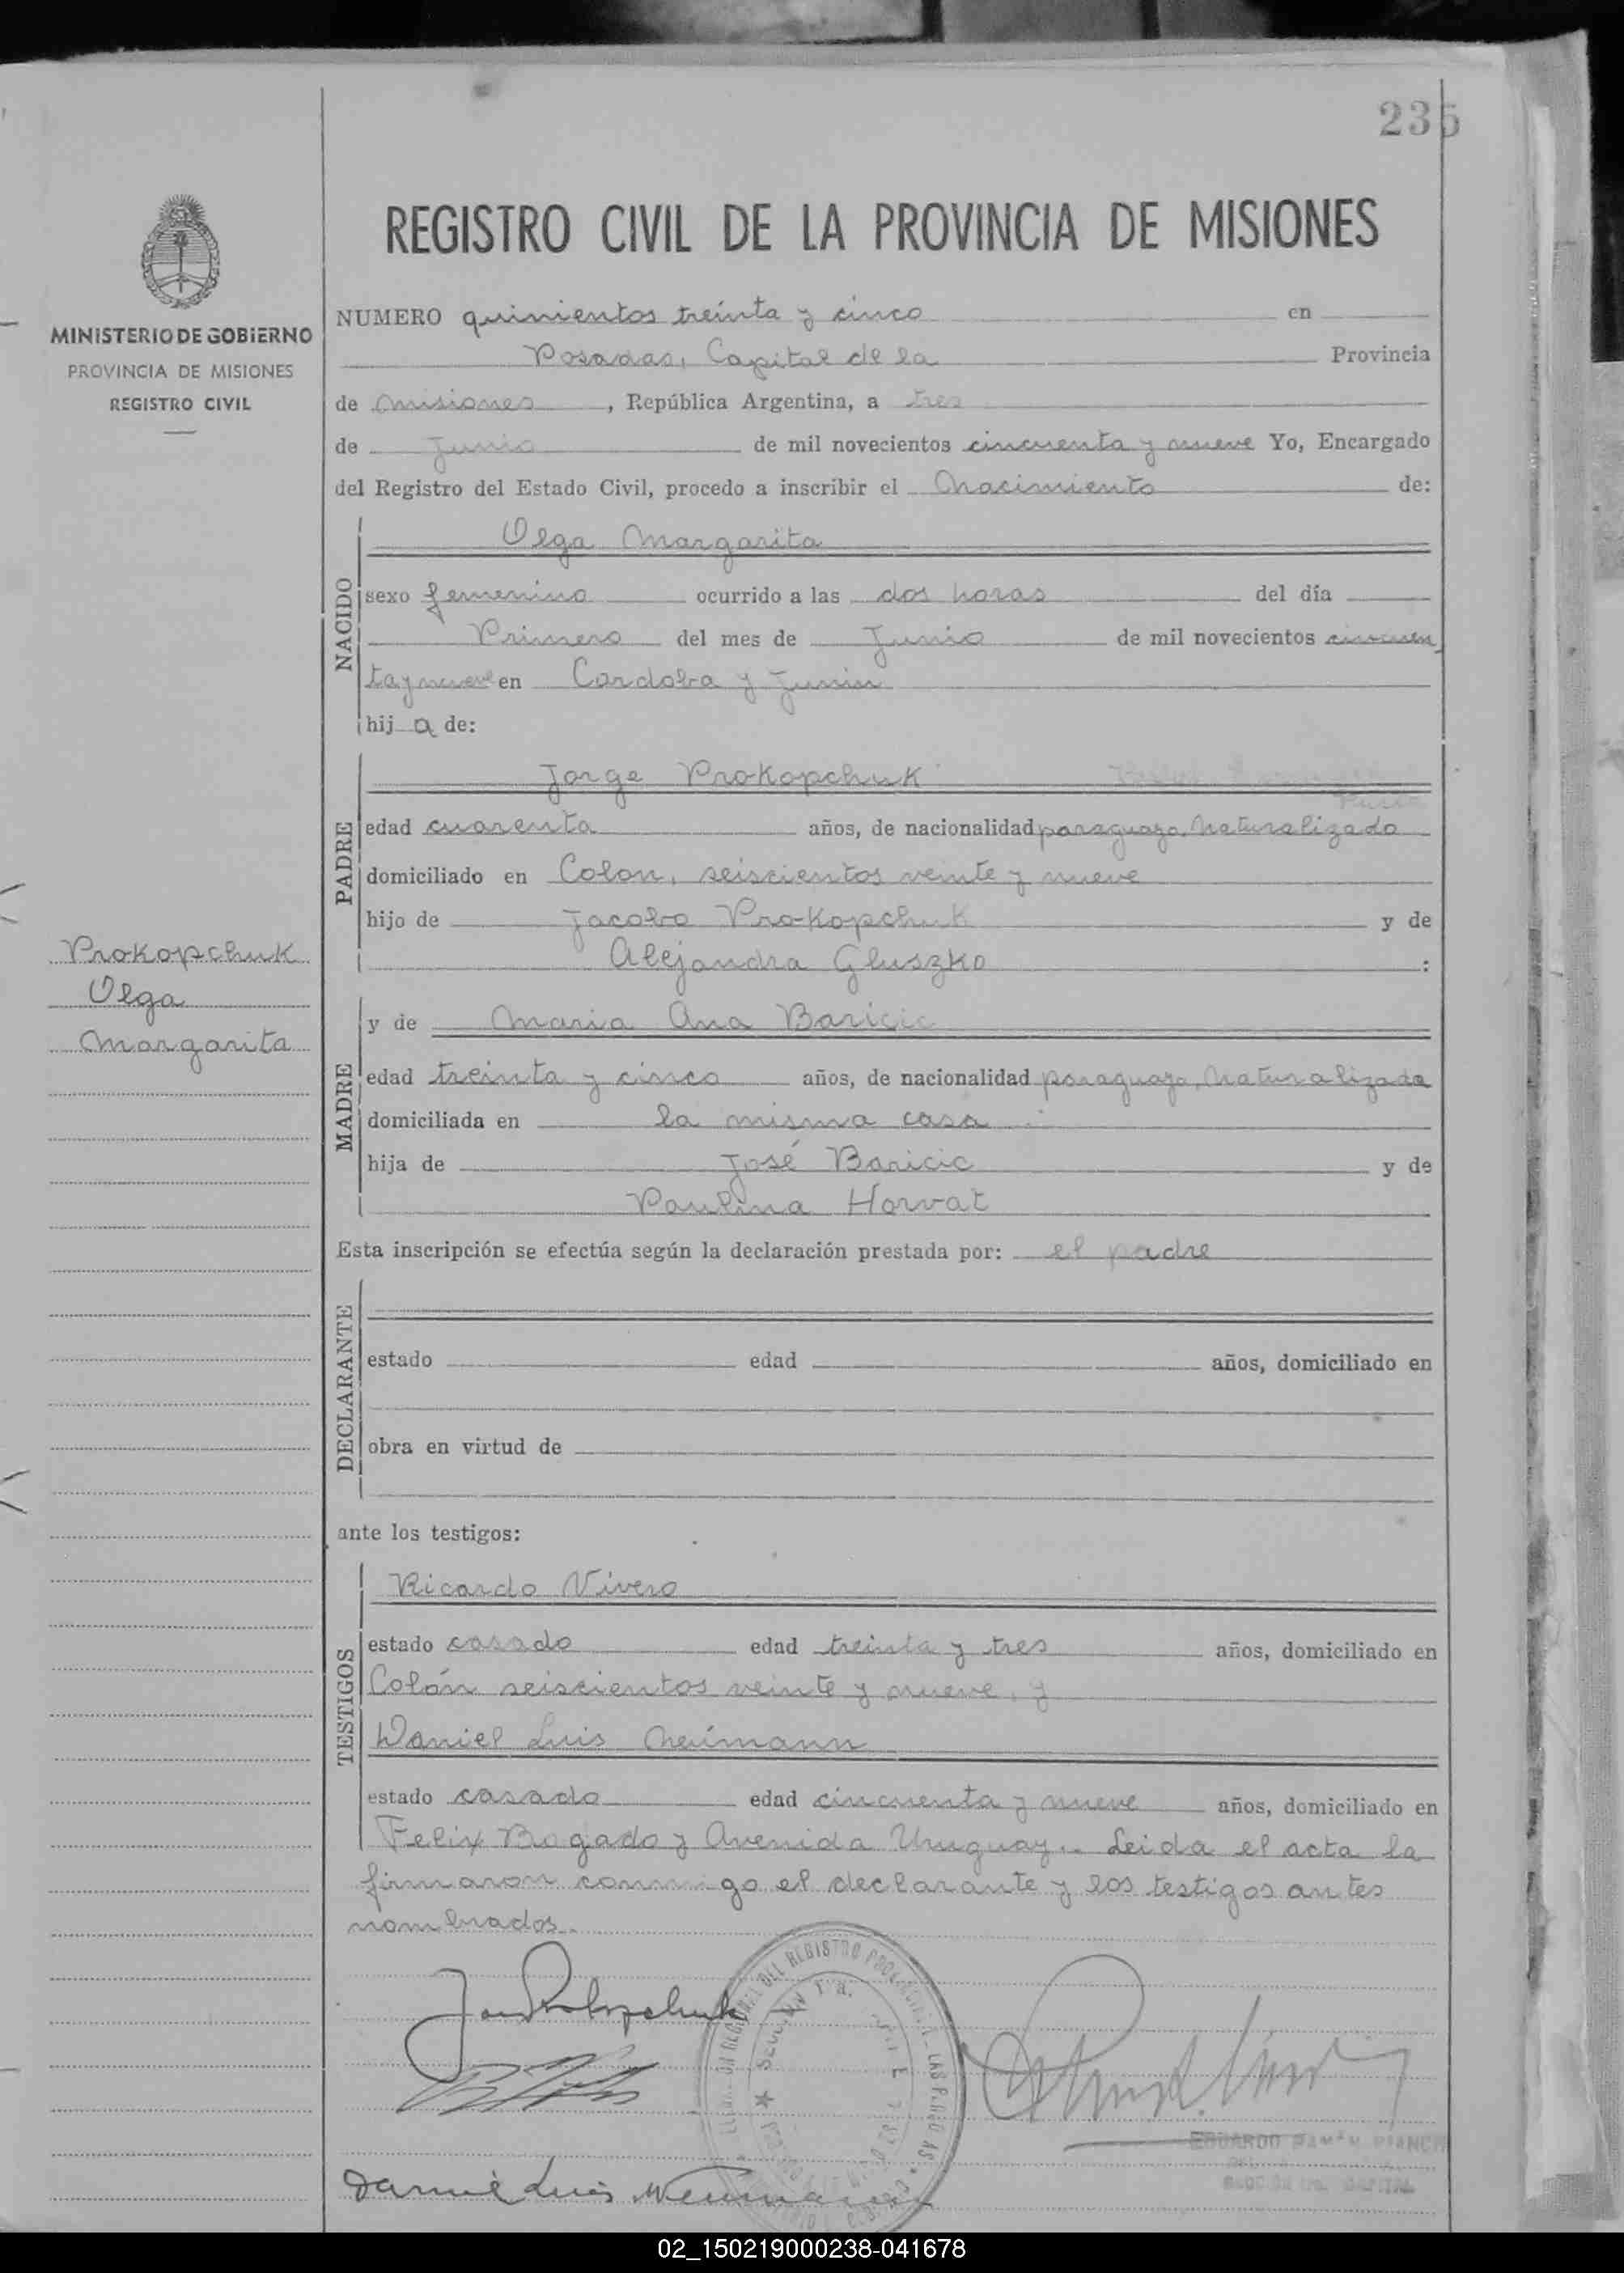 235
REGISTRO CIVIL DE LA PROVINCIA DE MISIONES
MINISTERIO DE GOBIERNO
PROVINCIA DE MISIONES
REGISTRO CIVIL
NUMERO quinientos treinta y cinco en
Posadas, Capital de la Provincia
de Misiones, República Argentina, a tres
de Junio de mil novecientos cincuenta y nueve Yo, Encargado
del Registro del Estado Civil, procedo a inscribir el Nacimiento de:
NACIDO
Olga Margarita
sexo femenino ocurrido a las dos horas del día
Primero del mes de Junio de mil novecientos cincuen
ta y nueve en Cordoba y Junin
hij a de:
PADRE
Jorge Prokopchuk
edad cuarenta años, de nacionalidad paraguayo, Naturalizado
domiciliado en Colon, seiscientos veinte y nueve
hijo de Jacobo Prokopchuk y de
Alejandra Gluszko :
Prokopchuk
Olga
Margarita
MADRE
y de Maria Ana Baricic
edad treinta y cinco años, de nacionalidad paraguaya, Naturalizada
domiciliada en la misma casa
hija de José Baricic y de
Paulina Horvat
Esta inscripción se efectúa según la declaración prestada por: el padre
DECLARANTE
estado edad años, domiciliado en
obra en virtud de
ante los testigos:
TESTIGOS
Ricardo Vivero
estado casado edad treinta y tres años, domiciliado en
Colón seiscientos veinte y nueve, y
Daniel Luis Neumann
estado casado edad cincuenta y nueve años, domiciliado en
Felix Bogado y Avenida Uruguay.. Leida el acta la
firmaron conmigo el declarante y los testigos antes
nombrados.
Prokopchuk
DEL REGISTRO
Daniel Luis Neumann
EDUARDO RAMÓN
CAPITAL
02_150219000238-041678